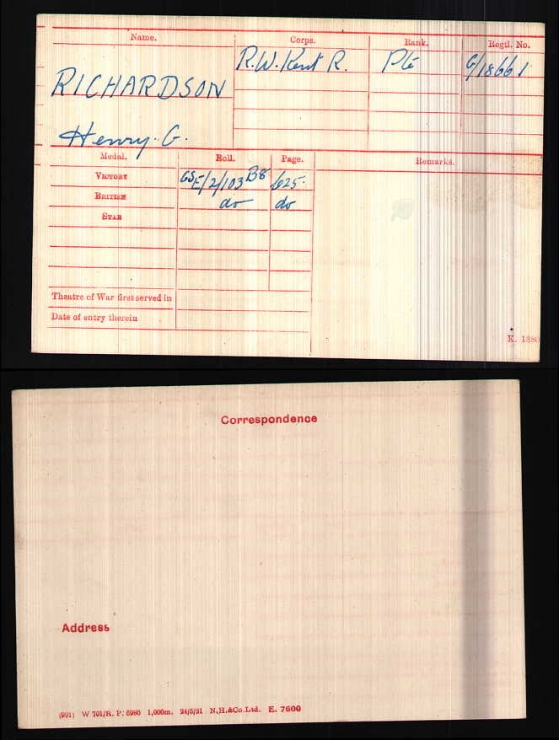 Name. Corps. Rank. Regtl. No.
R.W.Kent R. Pte G/18661
RICHARDSON
Henry. G.
Medal. Roll. Page. Remarks.
VICTORY GSE/2/103 B8 625.
BRITISH do do
STAR
Theatre of War first served in
Date of entry therein
Correspondence
Address
W 701/R. P. 6980 1,000m. 24/5/21 N.H.&Co.Ltd. E. 7600